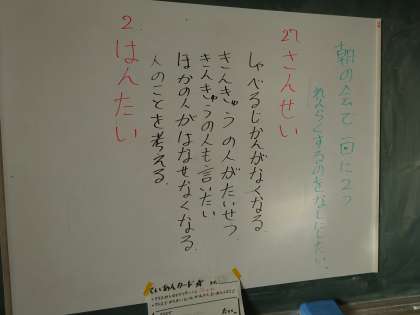 朝の会で一回に2つ
れんらくするのをなしにしたい。
27 さんせい
しゃべるじかんがなくなる。
きんきゅうの人がたいせつ
きんきゅうの人も言いたい
ほかの人がはなせなくなる。
人のことを考える。
2 はんたい
ていあんカード☆